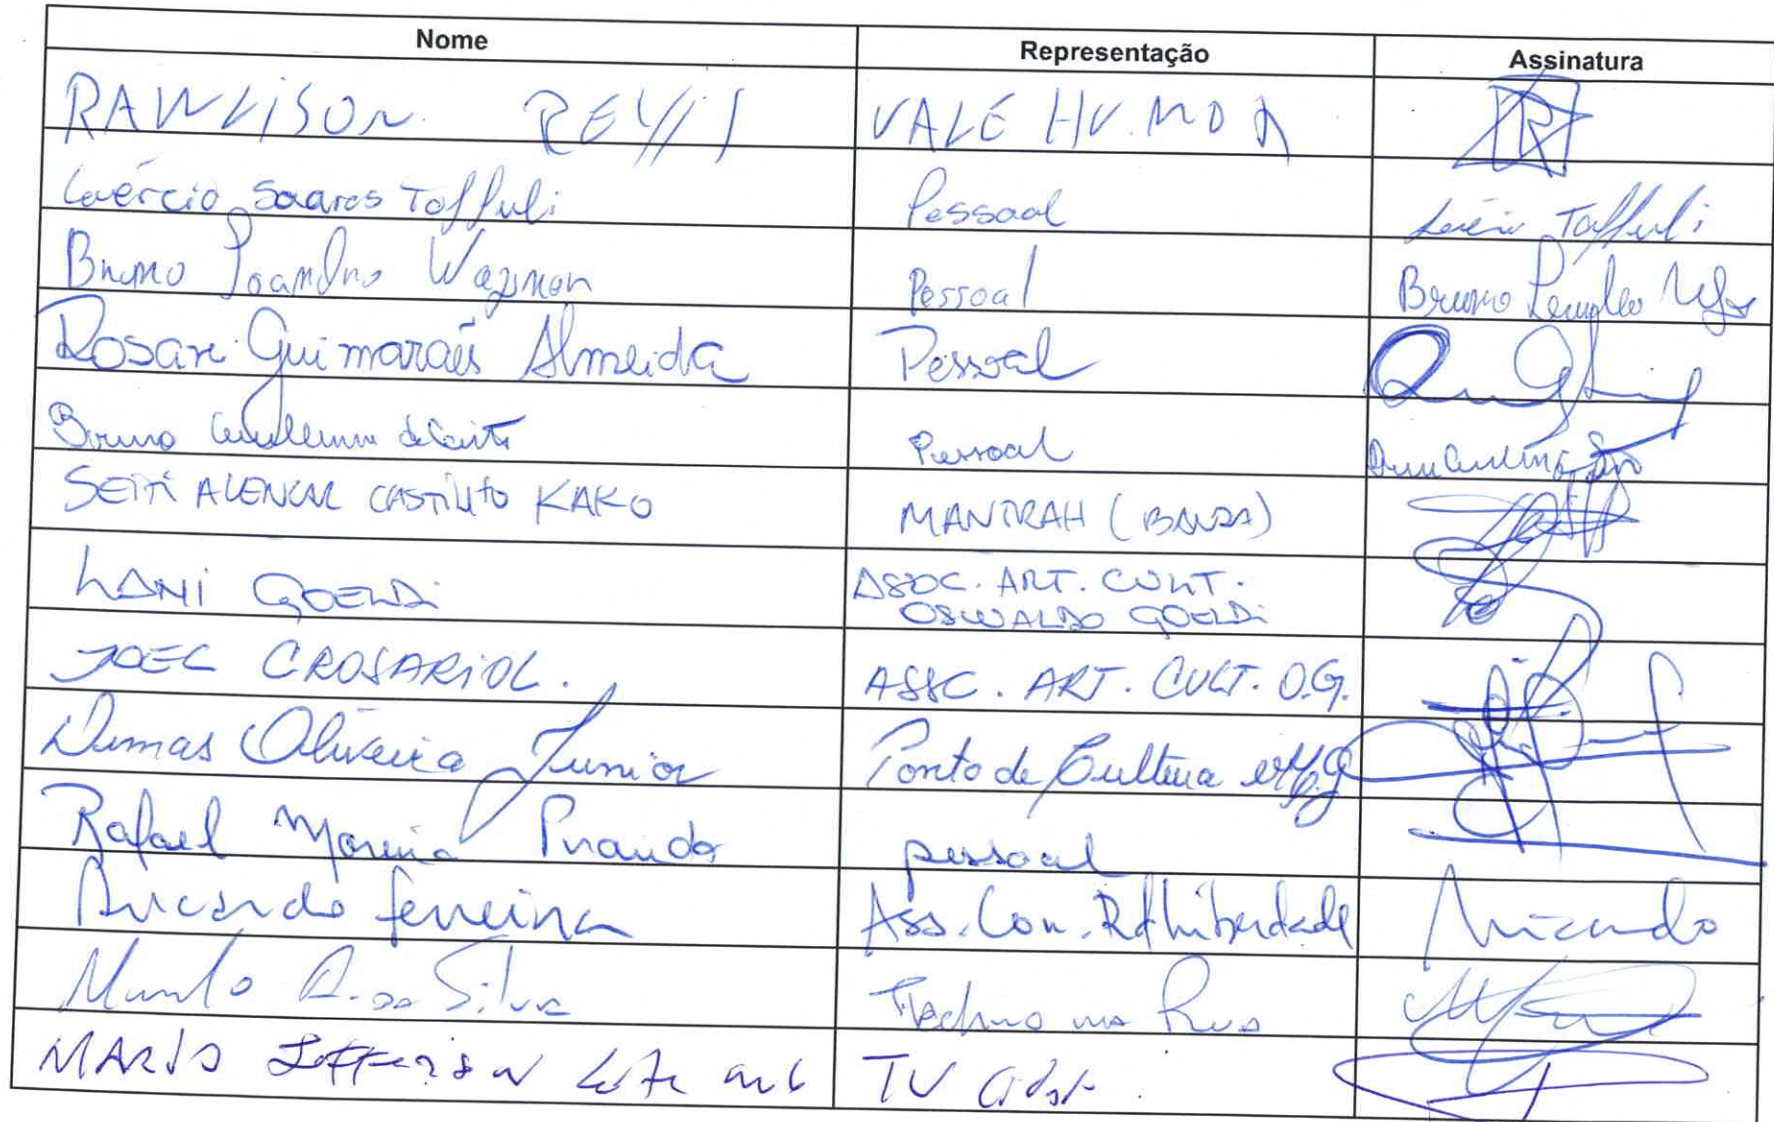 Nome Representação Assinatura
RAWLISON REYIS VALE HU.MO
Laércio Soares Toffuli Pessoal Laércio Toffuli
Bruno Leandro Wagner Pessoal Bruno
Rosane Guimarães Almeida Pessoal
Bruno Guilherme Pessoal
SEITI ALENCAR CASTILHO KAKO MANTRAH (BANDA)
LANI GOELDI ASSOC. ART. CULT.
OSWALDO GOELDI
JOEL CROSARIOL. ASSC. ART. CULT. O.G.
Dimas Oliveira Junior Ponto de Cultura
Rafael Moreira pessoal
Ricardo Ferreira Ass. Com. Rd Liberdade Ricardo
Murilo R. da Silva na Rua
MARIO Jefferson TV